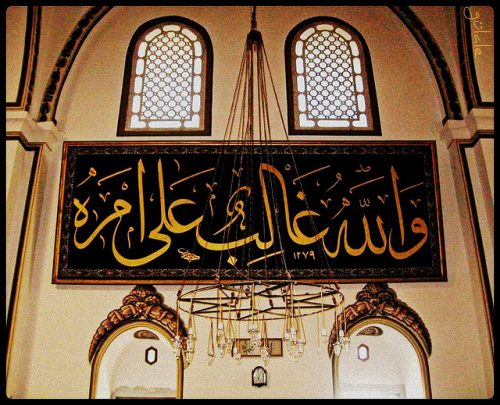 والله غالب على امره
١٢٧٩